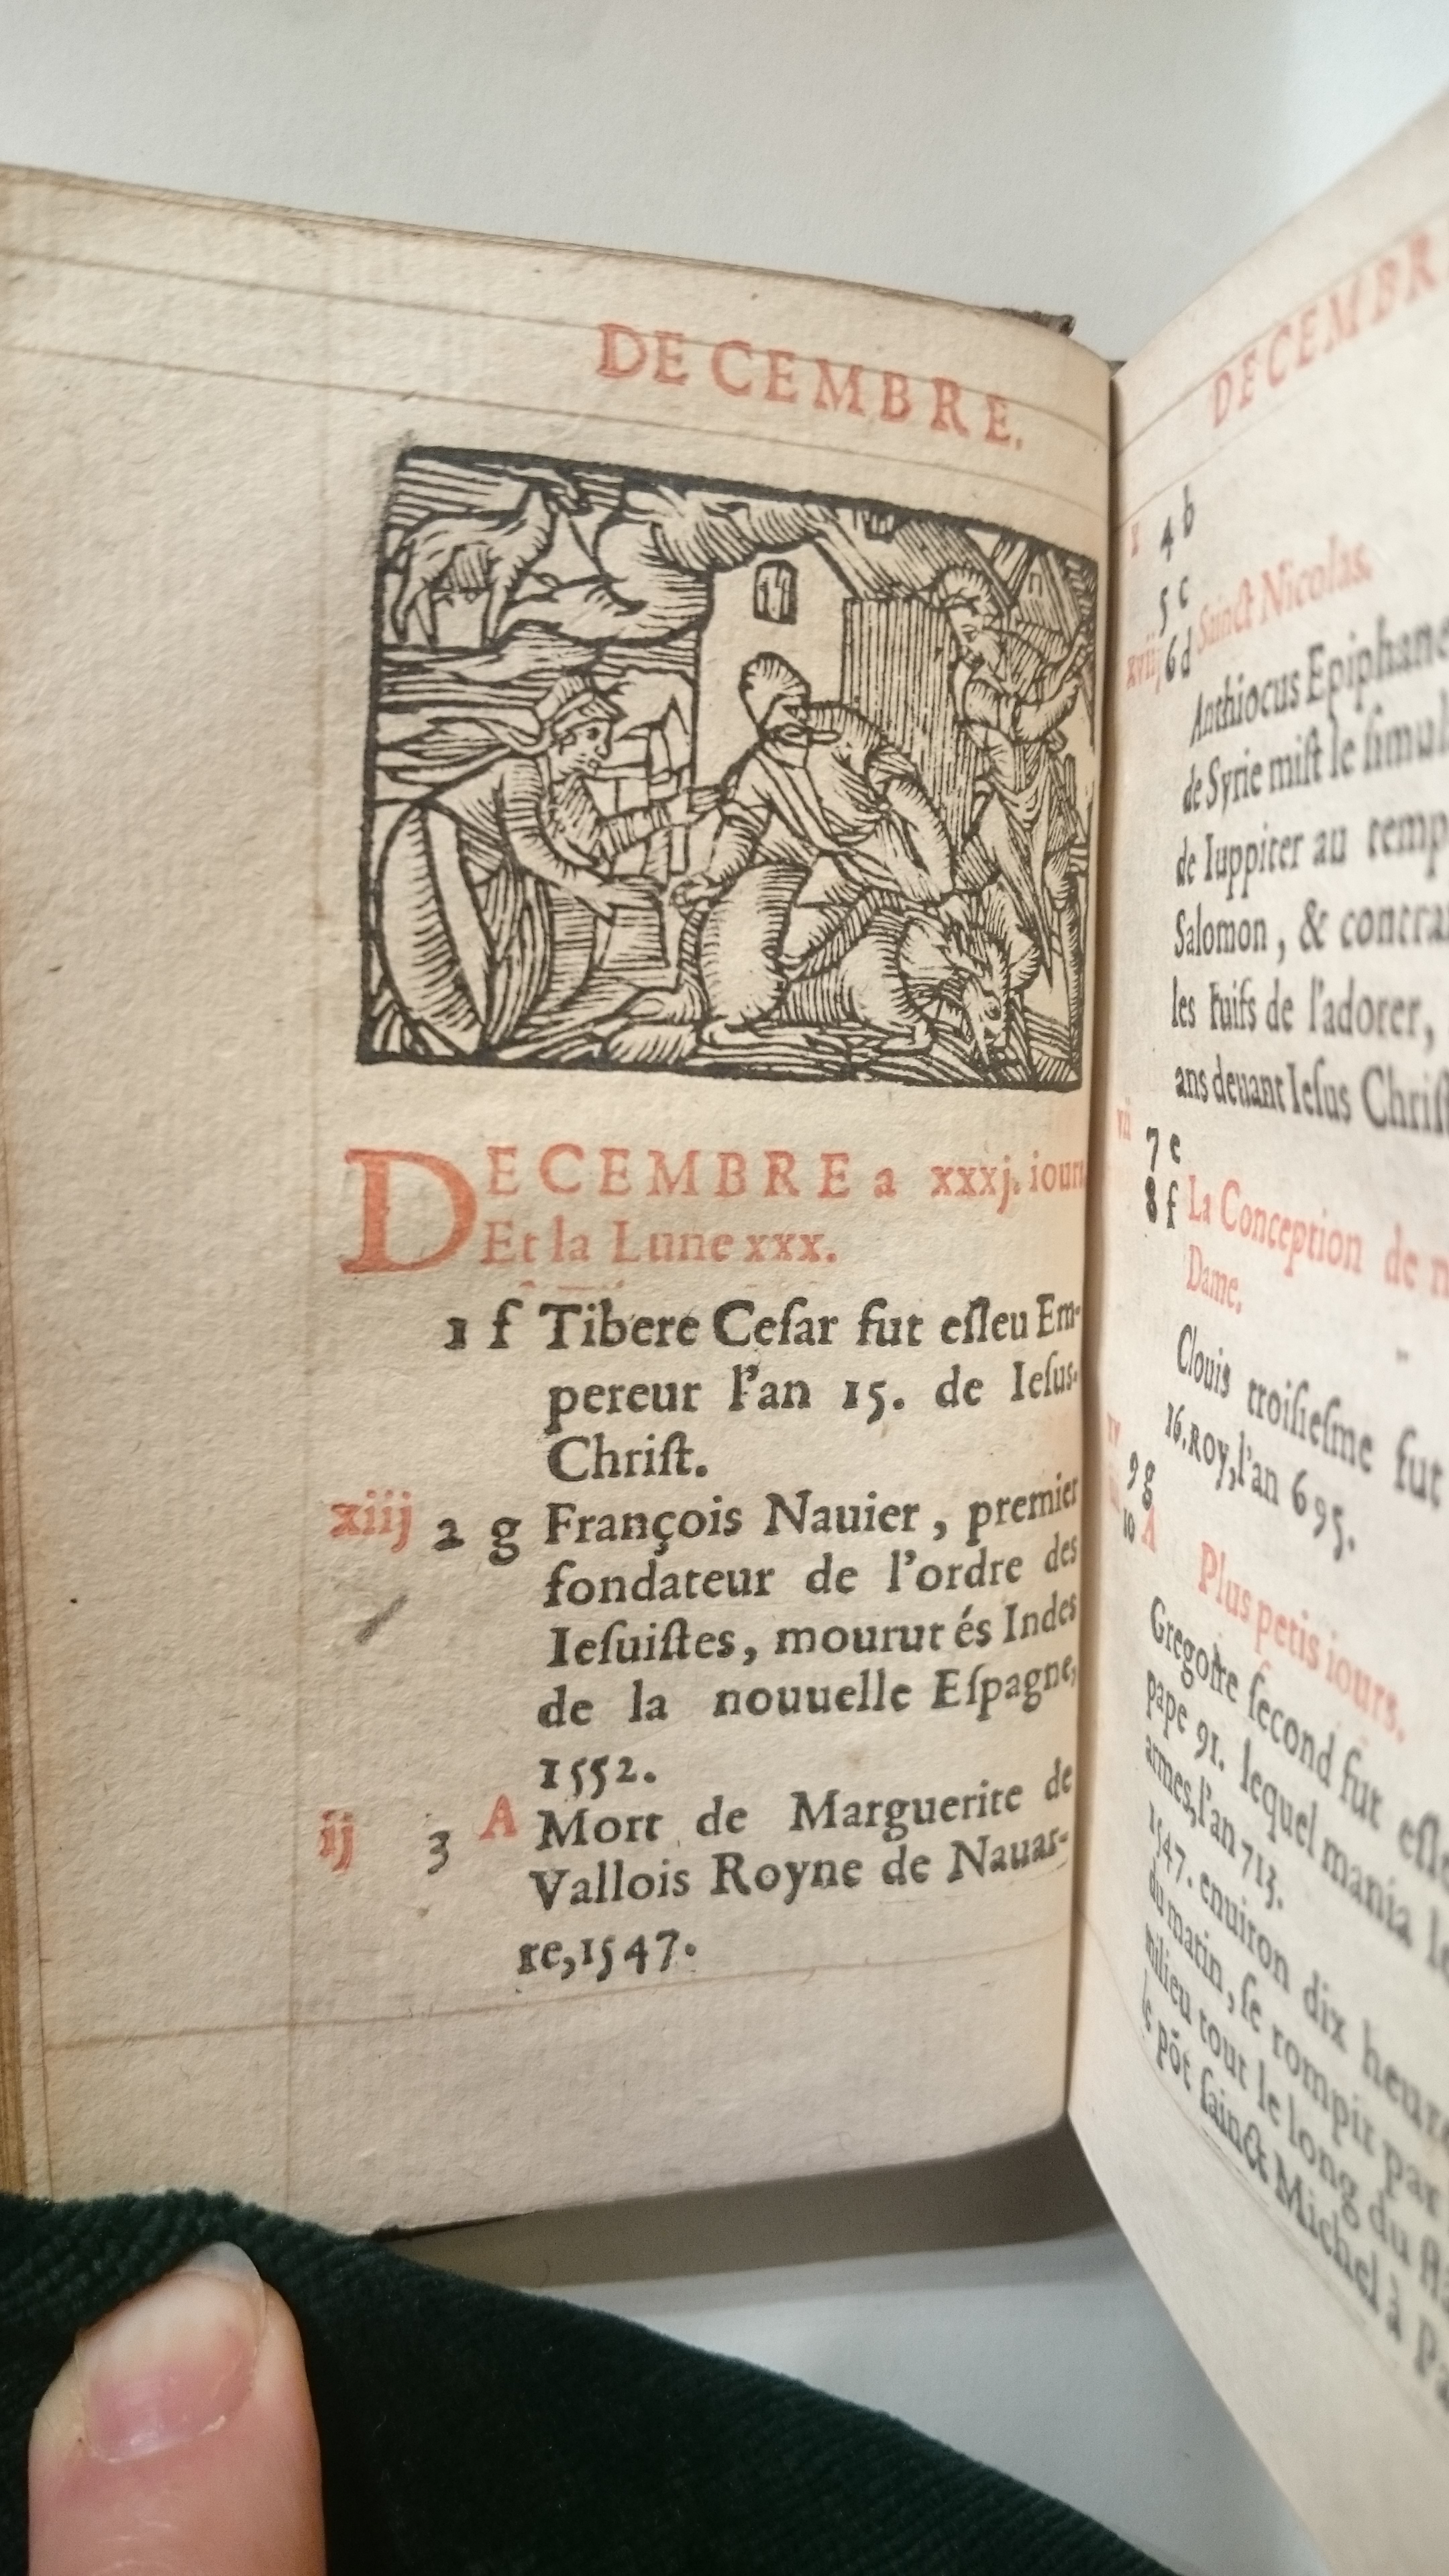 DECEMBRE.
DECEMBRE a xxxj. iour
Et la Lune xxx.
1 f Tibere Ceſar fut eſleu Em-
pereur l'an 15. de Ieſus-
Chriſt.
xiij 2 g François Nauier, premier
fondateur de l'ordre des
Ieſuiſtes, mourut és Indes
de la nouuelle Eſpagne,
1552.
ij 3 A Mort de Marguerite de
Vallois Royne de Nauar-
re, 1547.
DECEMBR
x 4 b
5 c
xviij 6 d Sainct Nicolas.
Anthiocus Epiphane
de Syrie miſt le ſimul
de Iuppiter au temp
Salomon, & contra
les Iuifs de l'adorer,
ans deuant Ieſus Chriſt
vii 7 e
8 f La Conception de n
Dame.
Clouis troiſieſme fut
16. Roy, l'an 695.
xv 9 g
10 A
Plus petis iours.
Gregoire ſecond fut eſle
pape 91. lequel mania le
armes, l'an 713.
1547. enuiron dix heure
du matin, ſe rompit par
milieu tout le long du
le põt ſainct Michel à Pa